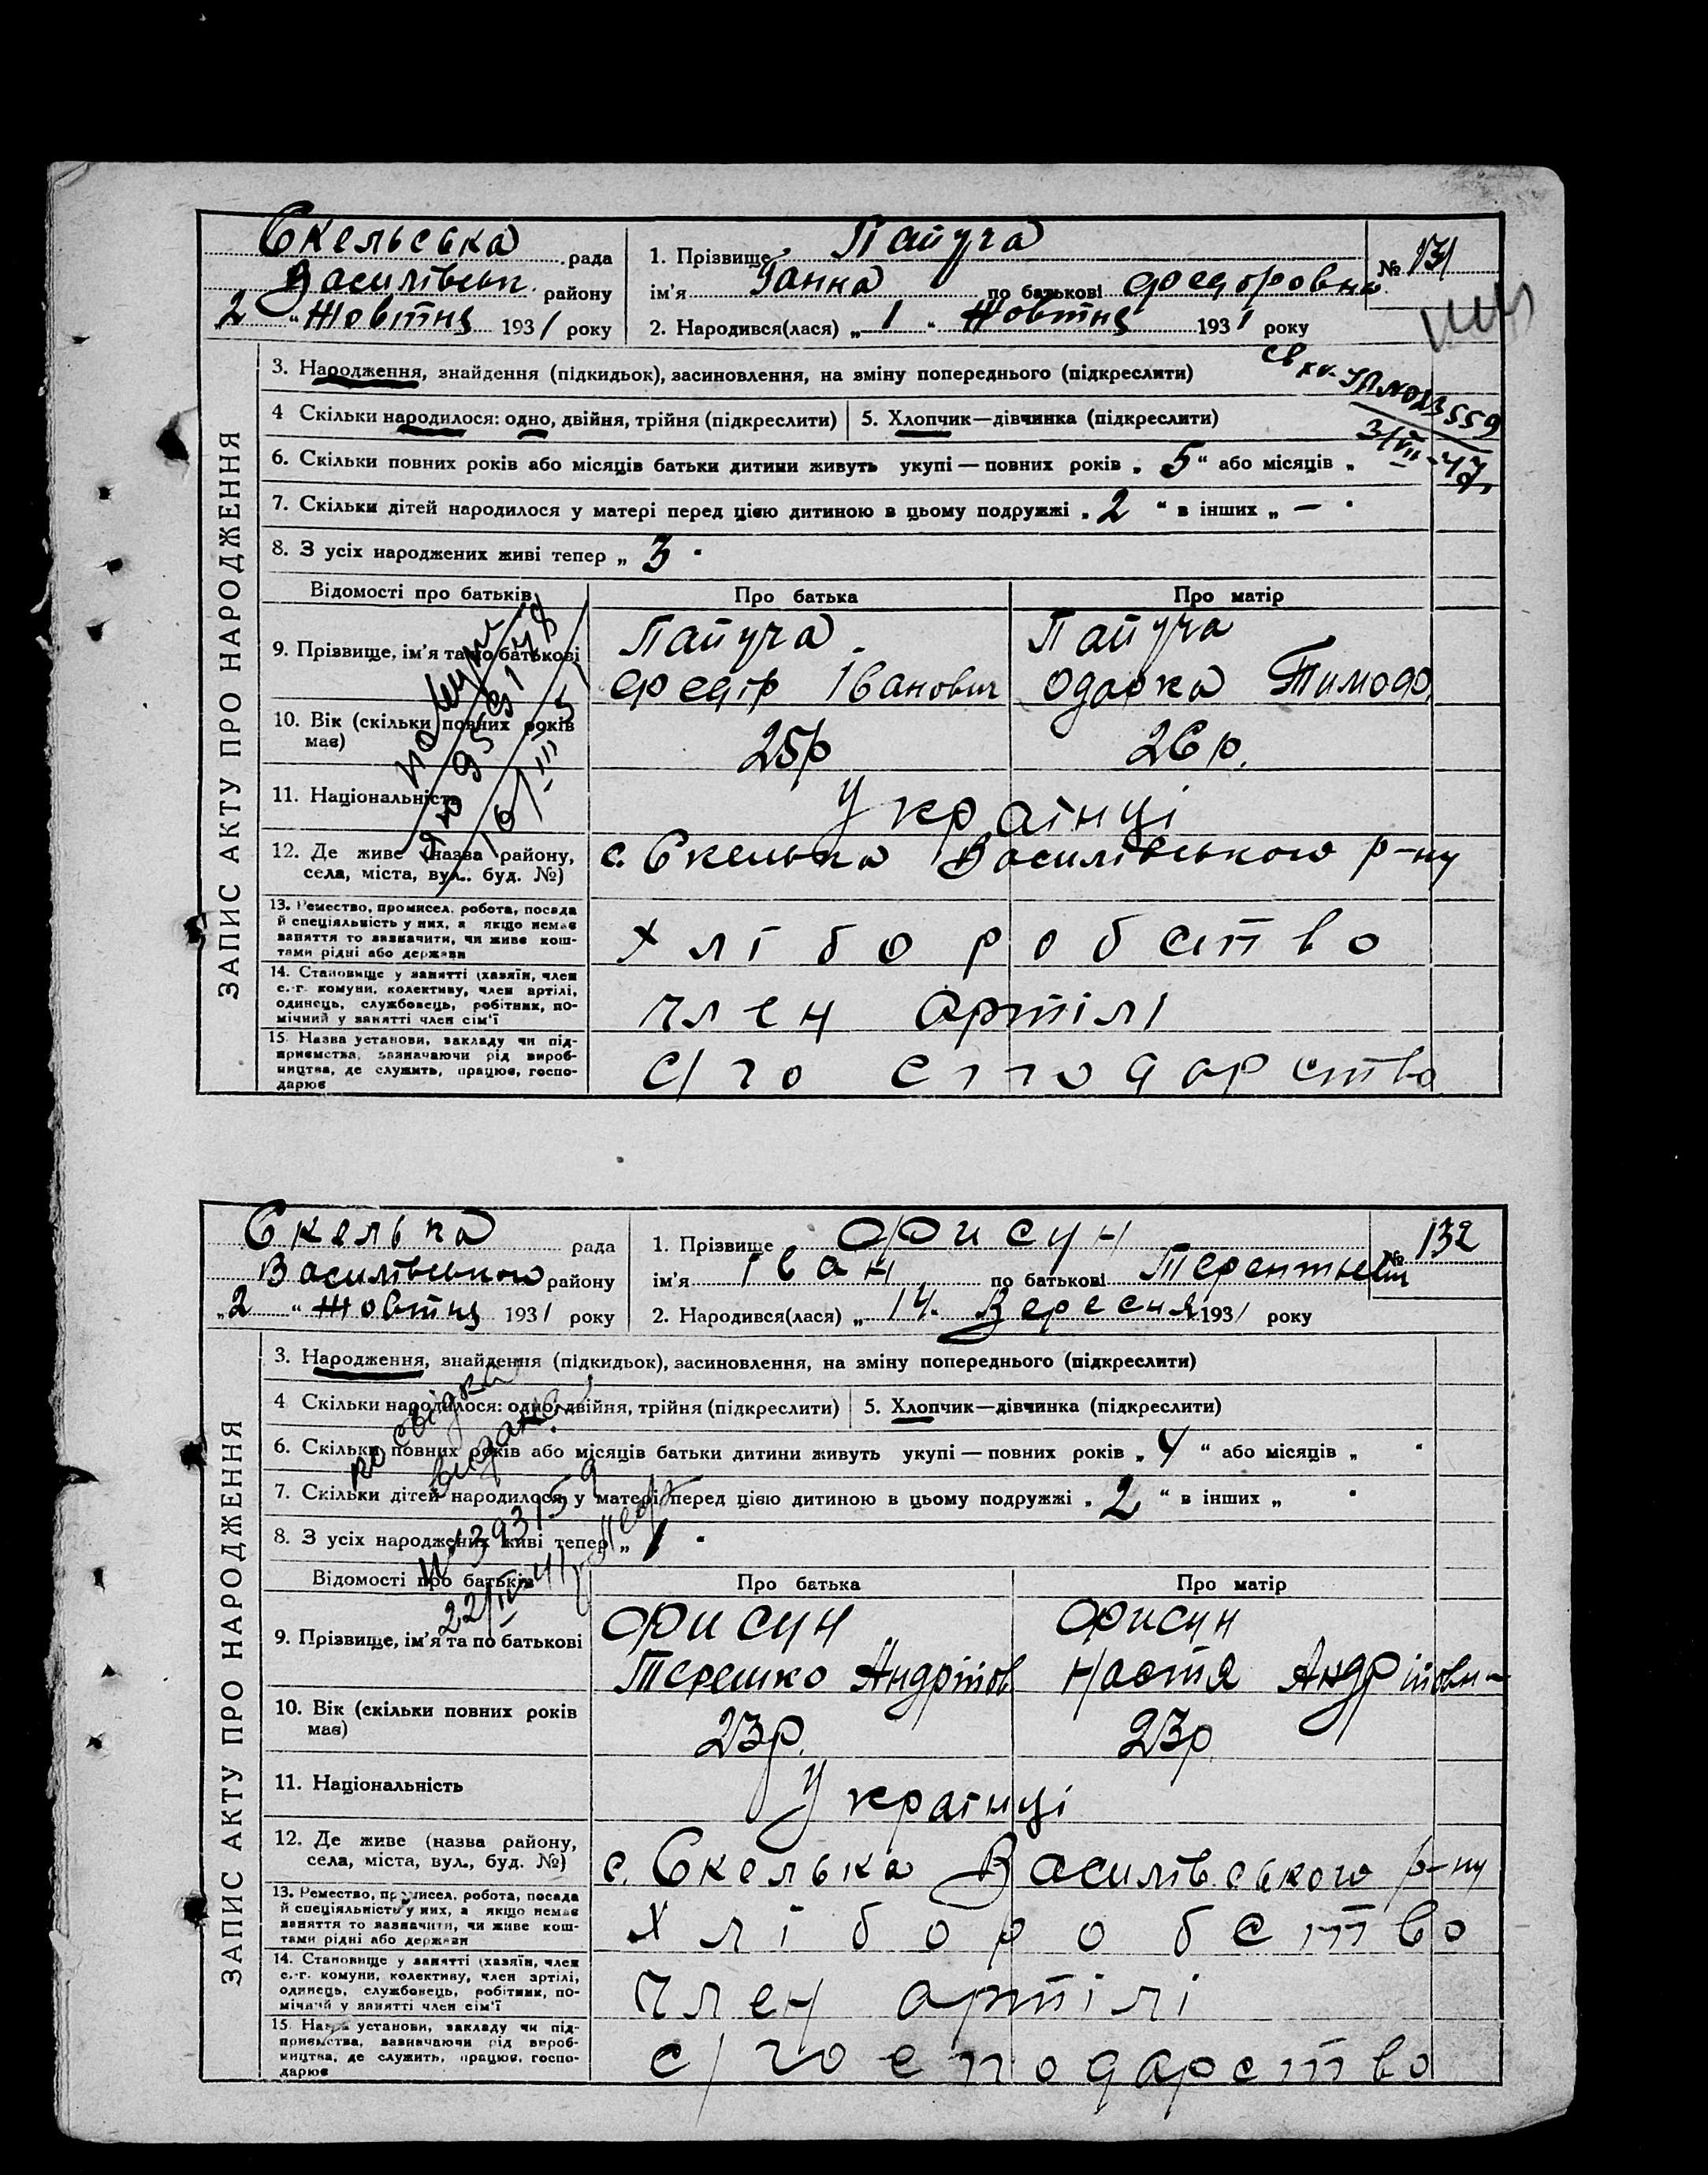 Скельська рада
Василівськ. району
2 "Жовтня 1931 року
1. Прізвище Папуча
ім'я Ганна по батькові Федоровна
2. Народився(лася) „ 1 " Жовтня 1931 року
№ 131
ЗАПИС АКТУ ПРО НАРОДЖЕННЯ
3. Народження, знайдення (підкидьок), засиновлення, на зміну попереднього (підкреслити)
4 Скільки народилося: одно, двійня, трійня (підкреслити)
5. Хлопчик—дівчинка (підкреслити)
3/VII-47
6. Скільки повних років або місяців батьки дитини живуть укупі — повних років „ 5 " або місяців „
7. Скільки дітей народилося у матері перед цією дитиною в цьому подружжі „ 2 " в інших „ — "
8. З усіх народжених живі тепер „ 3 "
Відомості про батьків
Про батька
Про матір
9. Прізвище, ім'я та по батькові
Папуча
Федір Іванович
Папуча
Одарка Тимоф.
10. Вік (скільки повних років має)
25р
26р.
11. Національність
Українці
12. Де живе (назва району, села, міста, вул.. буд. №)
с. Скелька Василівського р-ну
13. Ремество, промисел, робота, посада
й спеціяльність у них, а якщо немає
заняття то зазначити, чи живе кош-
тами рідні або держави
Хліборобство
14. Становище у занятті (хазяїн, член
с.-г. комуни, колективу, член артілі,
одинець, службовець, робітник, по-
мічний у занятті член сім'ї
член артілі
15. Назва установи, закладу чи під-
приємства, зазначаючи рід вироб-
ництва, де служить, працює, госпо-
дарює
с/господарство
Скелька рада
Василівського району
„2 "Жовтня 1931 року
1. Прізвище Фисун
ім'я Іван по батькові Терентиевич
2. Народився(лася) „ 14 " Вересня 1931 року
№ 132
ЗАПИС АКТУ ПРО НАРОДЖЕННЯ
3. Народження, знайдення (підкидьок), засиновлення, на зміну попереднього (підкреслити)
4 Скільки народилося: одно, двійня, трійня (підкреслити)
5. Хлопчик—дівчинка (підкреслити)
6. Скільки повних років або місяців батьки дитини живуть укупі — повних років „ 4 " або місяців „ "
7. Скільки дітей народилося у матері перед цією дитиною в цьому подружжі „ 2 " в інших „ "
8. З усіх народжених живі тепер „ 1 "
видана
№ 393159
22/IV-41
Відомості про батьків
Про батька
Про матір
9. Прізвище, ім'я та по батькові
Фисун
Терешко Андрійов
Фисун
Настя Андрійовн-
10. Вік (скільки повних років має)
23р.
23р
11. Національність
Українці
12. Де живе (назва району, села, міста, вул., буд. №)
с. Скелька Василівського р-ну
13. Ремество, промисел, робота, посада
й спеціяльність у них, а якщо немає
заняття то зазначити, чи живе кош-
тами рідні або держави
Хліборобство
14. Становище у занятті (хазяїн, член
с.-г. комуни, колективу, член артілі,
одинець, службовець, робітник, по-
мічний у занятті член сім'ї
член артілі
15. Назва установи, закладу чи під-
приємства, зазначаючи рід вироб-
ництва, де служить, працює, госпо-
дарює
с/господарство